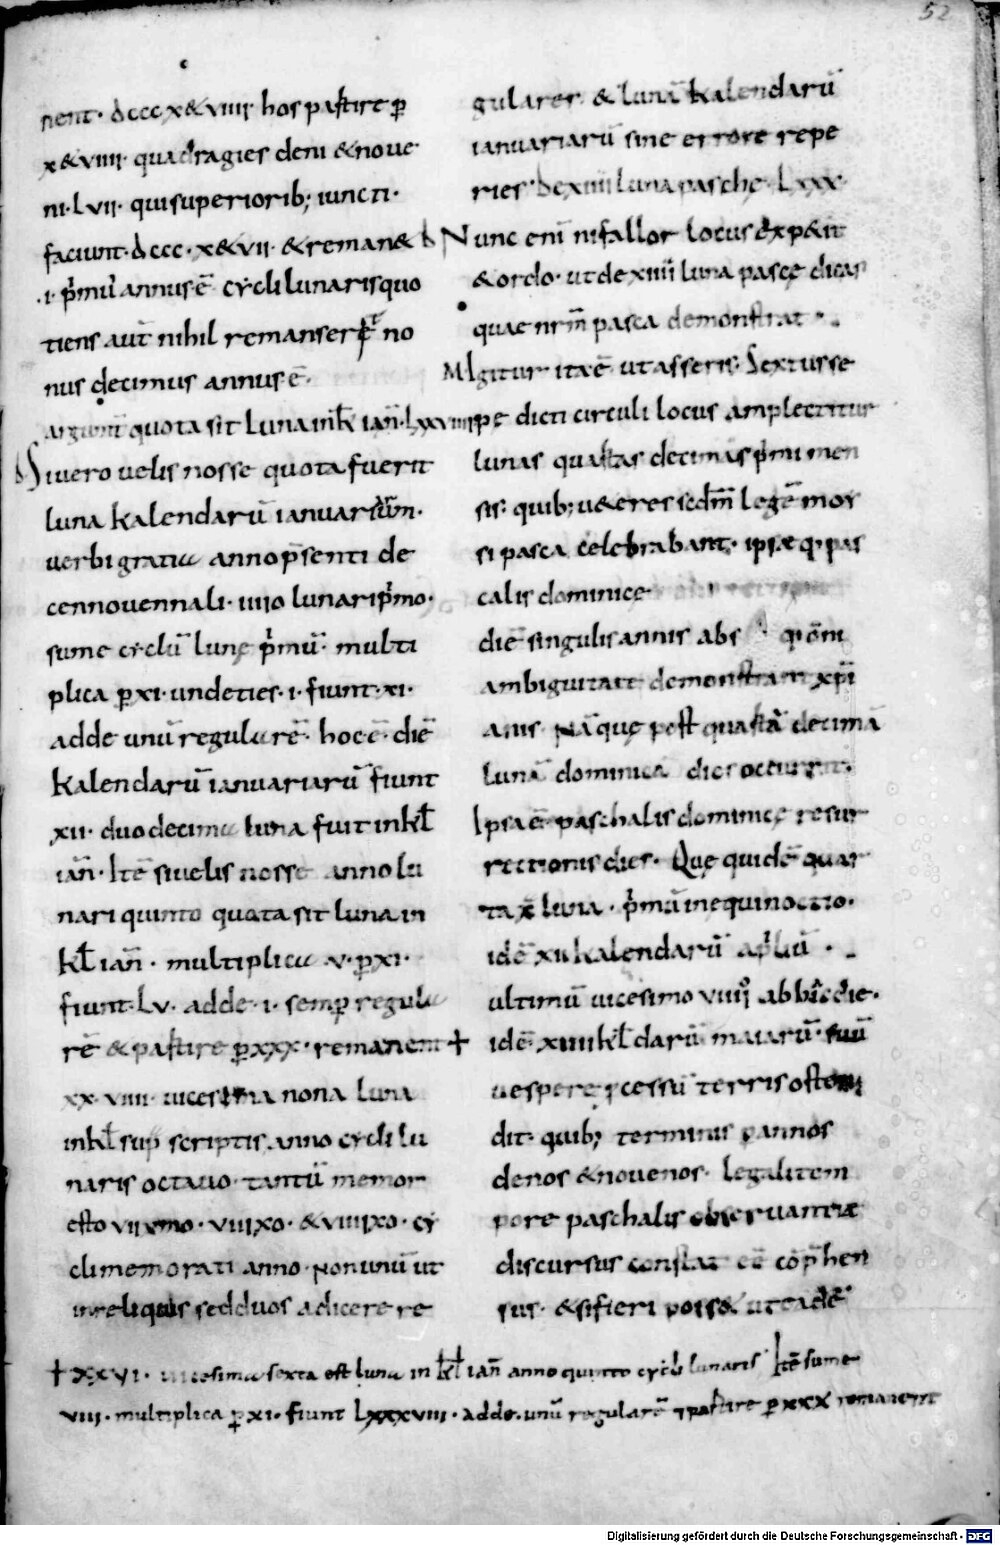 52
nent· dccc x&viiii hos partire p̄
x&viiii quadragies deni & noue
ni· lvii· qui superiorib; iuncti·
faciunt· dccc· x&vii· & reman&
·i· p̄mus annus ē cycli lunaris quo
tiens aūt nihil remanserit no
nus decimus annus ē·
argum̄t quota sit Luna in kł iañ· Lxxviiii
Si uero uelis nosse quota fuerit
luna kalendarū ianuariarum·
uerbi gratia anno p̄senti de
cennouennali· iiiio lunari p̄mo·
sume cyclū lunę p̄mū· multi
plica p̄ xi· undeties· i· fiunt· xi·
adde unū regularē· hoc ē· diē
kalendarū ianuariarū fiunt
xii· duodecima luna fuit in kł
iañ· Itē si uelis nosse anno lu
nari quinto quota sit luna in
kł iañ· multiplica ·v· p̄ xi·
fiunt· Lv· adde· i· semp regula
rē & partire p̄ xxx· remanent +
xx·viiii· uicesima nona luna
in kł sup scriptis anno cycli lu
naris octauo· tantū memor
esto viimo· viiixo· & viiiixo· cy
cli memorati anno· Non unū ut
in reliquis sed duos adicere re
gulares & lunā kalendarū
ianuariarū sine errore repe
ries· De xiiii Luna pasche· Lxxx·
Nunc enī ni fallor Locus expetit
& ordo· ut de xiiii luna pascę dicas
quae nr̄m pasca demonstrat·
M· Igitur ita ē ut asseris· Sextus se
pe dicti circuli locus amplectitur
lunas quartas decimas p̄mi men
sis· quib; ueteres scdm̄ legē moy
si pasca celebrabant· ipsæq· pas
calis dominicę
diē singulis annis abs q· om̄i
ambiguitate demonstrant xp̄i
anis· Nā quę post quartā decimā
lunā dominica dies occurrit·
Ipsa ē paschalis dominicę resur
rectionis dies· Quę quidē quar
ta x luna· p̄mū in equinoctio·
idē xii kalendarū ap̄liū·
ultimū uicesimo viiii ab hīc die·
idē xiiii kł darū maiarū· suū
uespere ꝓcessū terris osten
dit· quib; terminis p annos
denos & nouenos· legali tem
pore paschalis obseruantiæ
discursus constat eē cōp̄hen
sus· & si fieri posset ut eadē
+ xxvi· uicesima sexta est luna in kł iañ anno quinto cycli lunaris· Itē sume
viii· multiplica p̄ xi· fiunt Lxxxviii· adde· unū regularē ⁊ partire p̄ xxx remanent
Digitalisierung gefördert durch die Deutsche Forschungsgemeinschaft - DFG